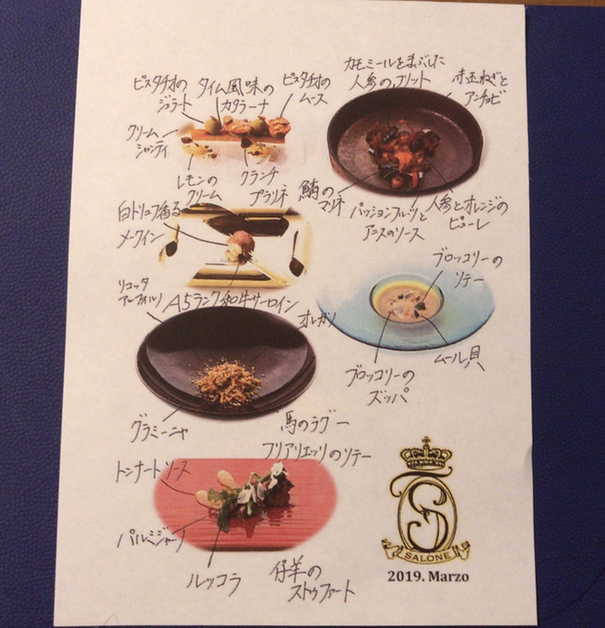 ピスタチオの
ジェラート
タイム風味の
カタラーナ
ピスタチオの
ムース
クリーム
シャンティ
レモンの
クリーム
クランチ
プラリネ
カモミールをまぶした
人参のフリット
赤玉ねぎと
アンチョビ
鯖の
マリネ
パッションフルーツと
アニスのソース
人参とオレンジの
ピューレ
白トリュフ香る
メークイン
A5ランク和牛サーロイン
ブロッコリーの
ソテー
ムール貝
ブロッコリーの
ズッパ
リコッタ
アッフォルノ
オレガノ
グラミーニャ
馬のラグー
フリアリエッリのソテー
トンナートソース
パルミジャーノ
ルッコラ
仔羊の
ストゥファート
S
SALONE
2019. Marzo